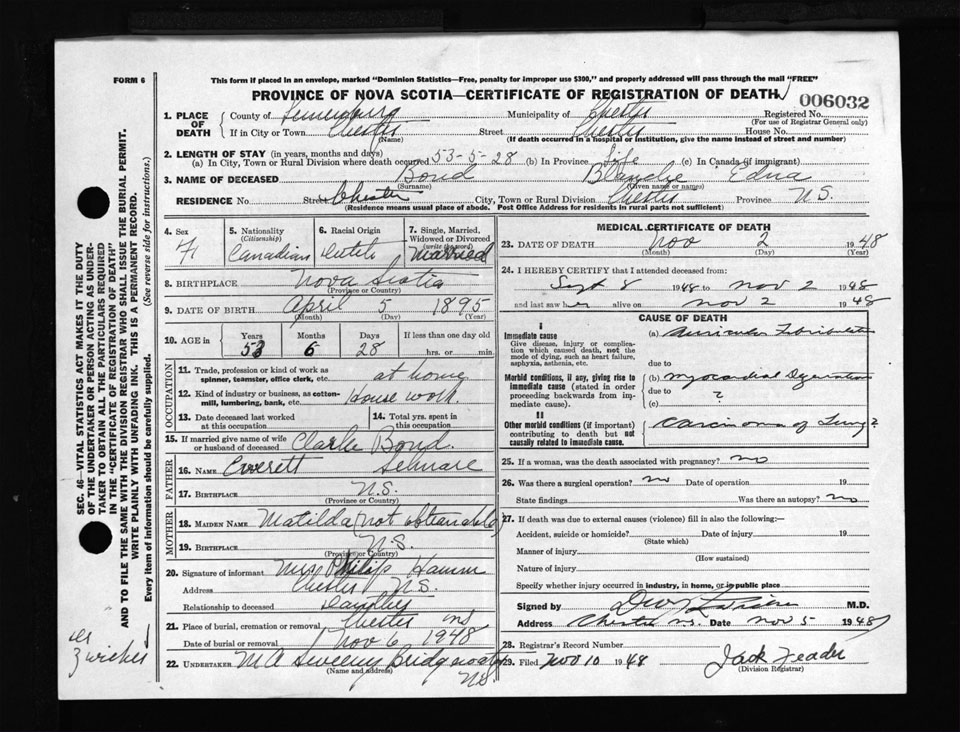 FORM 6
This form if placed in an envelope, marked "Dominion Statistics—Free, penalty for improper use $300," and properly addressed will pass through the mail "FREE"
PROVINCE OF NOVA SCOTIA—CERTIFICATE OF REGISTRATION OF DEATH
006032
1. PLACE OF DEATH
County of Lunenburg Municipality of Chester Registered No.
(For use of Registrar General only)
If in City or Town Chester Street Chester House No.
(Name) (If death occurred in a hospital or institution, give the name instead of street and number)
2. LENGTH OF STAY (in years, months and days)
(a) In City, Town or Rural Division where death occurred 53-5-28 (b) In Province Life (c) In Canada (if immigrant)
3. NAME OF DECEASED Bond Blanche Edna
(Surname) (Given name or names)
RESIDENCE No. Street Chester City, Town or Rural Division Chester Province N.S.
(Residence means usual place of abode. Post Office Address for residents in rural parts not sufficient)
4. Sex F
5. Nationality (Citizenship) Canadian
6. Racial Origin Dutch
7. Single, Married, Widowed or Divorced (write the word) Married
8. BIRTHPLACE Nova Scotia
(Province or Country)
9. DATE OF BIRTH April 5 1895
(Month) (Day) (Year)
10. AGE in Years Months Days If less than one day old
53 6 28 hrs. or min.
OCCUPATION
11. Trade, profession or kind of work as spinner, teamster, office clerk, etc. at home
12. Kind of industry or business, as cotton-mill, lumbering, bank, etc. House work
13. Date deceased last worked at this occupation
14. Total yrs. spent in this occupation
15. If married give name of wife or husband of deceased Clarke Bond.
FATHER
16. NAME Everett
17. BIRTHPLACE N.S.
(Province or Country)
MOTHER
18. MAIDEN NAME Matilda (not obtainable)
19. BIRTHPLACE N.S.
(Province or Country)
20. Signature of informant Mrs Philip Hamm
Address Chester N.S.
Relationship to deceased Daughter
21. Place of burial, cremation or removal Chester NS
Date of burial or removal Nov 6 1948
22. UNDERTAKER M A Sweeny Bridgewater
(Name and address) N.S.
MEDICAL CERTIFICATE OF DEATH
23. DATE OF DEATH Nov 2 1948
(Month) (Day) (Year)
24. I HEREBY CERTIFY that I attended deceased from:
Sept 8 1948 to Nov 2 1948
and last saw her alive on Nov 2 1948
CAUSE OF DEATH
I
Immediate cause
Give disease, injury or complication which caused death, not the mode of dying, such as heart failure, asphyxia, asthenia, etc.
(a) Auricular Fibrillation
due to
Morbid conditions, if any, giving rise to immediate cause (stated in order proceeding backwards from immediate cause).
(b) Myocardial Degeneration
due to ?
(c)
II
Other morbid conditions (if important) contributing to death but not causally related to immediate cause.
Carcinoma of Lung ?
25. If a woman, was the death associated with pregnancy? no
26. Was there a surgical operation? no Date of operation 19
State findings Was there an autopsy? no
27. If death was due to external causes (violence) fill in also the following:—
Accident, suicide or homicide? Date of injury 19
(State which)
Manner of injury
(How sustained)
Nature of injury
Specify whether injury occurred in industry, in home, or in public place
Signed by M.D.
Address Chester N.S. Date Nov 5 1948
28. Registrar's Record Number
29. Filed Nov 10 1948 Jack
(Division Registrar)
SEC. 46—VITAL STATISTICS ACT MAKES IT THE DUTY
OF THE UNDERTAKER OR PERSON ACTING AS UNDER-
TAKER TO OBTAIN ALL THE PARTICULARS REQUIRED
IN THE "CERTIFICATE OF REGISTRATION OF DEATH"
AND TO FILE THE SAME WITH THE DIVISION REGISTRAR WHO SHALL ISSUE THE BURIAL PERMIT.
WRITE PLAINLY WITH UNFADING INK. THIS IS A PERMANENT RECORD.
Every item of information should be carefully supplied. (See reverse side for instructions.)
Zwicker